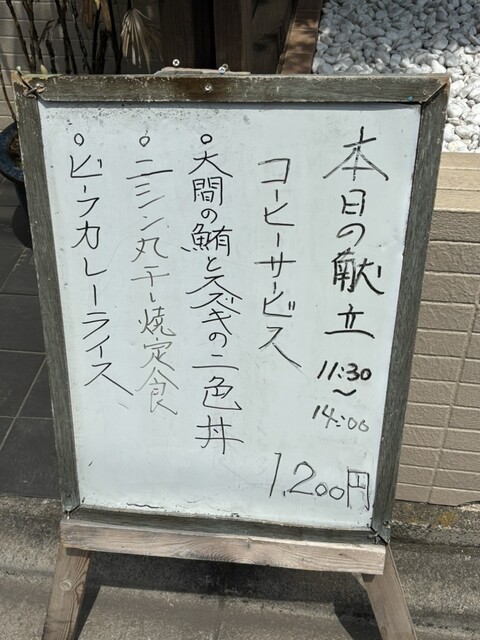 本日の献立 11:30〜14:00
コーヒーサービス 1,200円
○大間の鮪とスズキの二色丼
○ニシン丸干し焼定食
○ビーフカレーライス